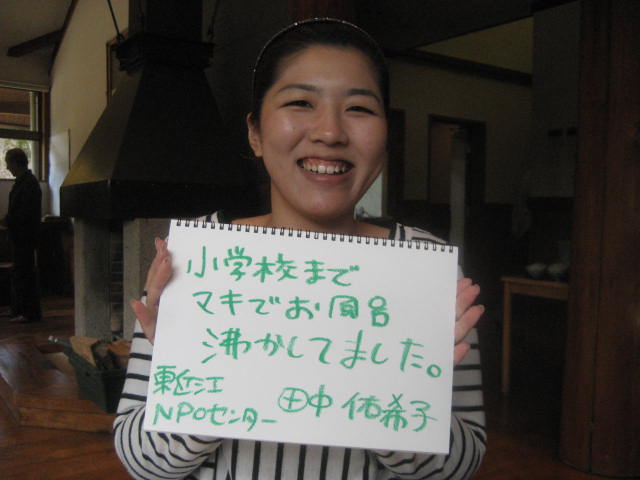 小学校まで
マキでお風呂
沸かしてました。
東近江
NPOセンター 田中 佑希子